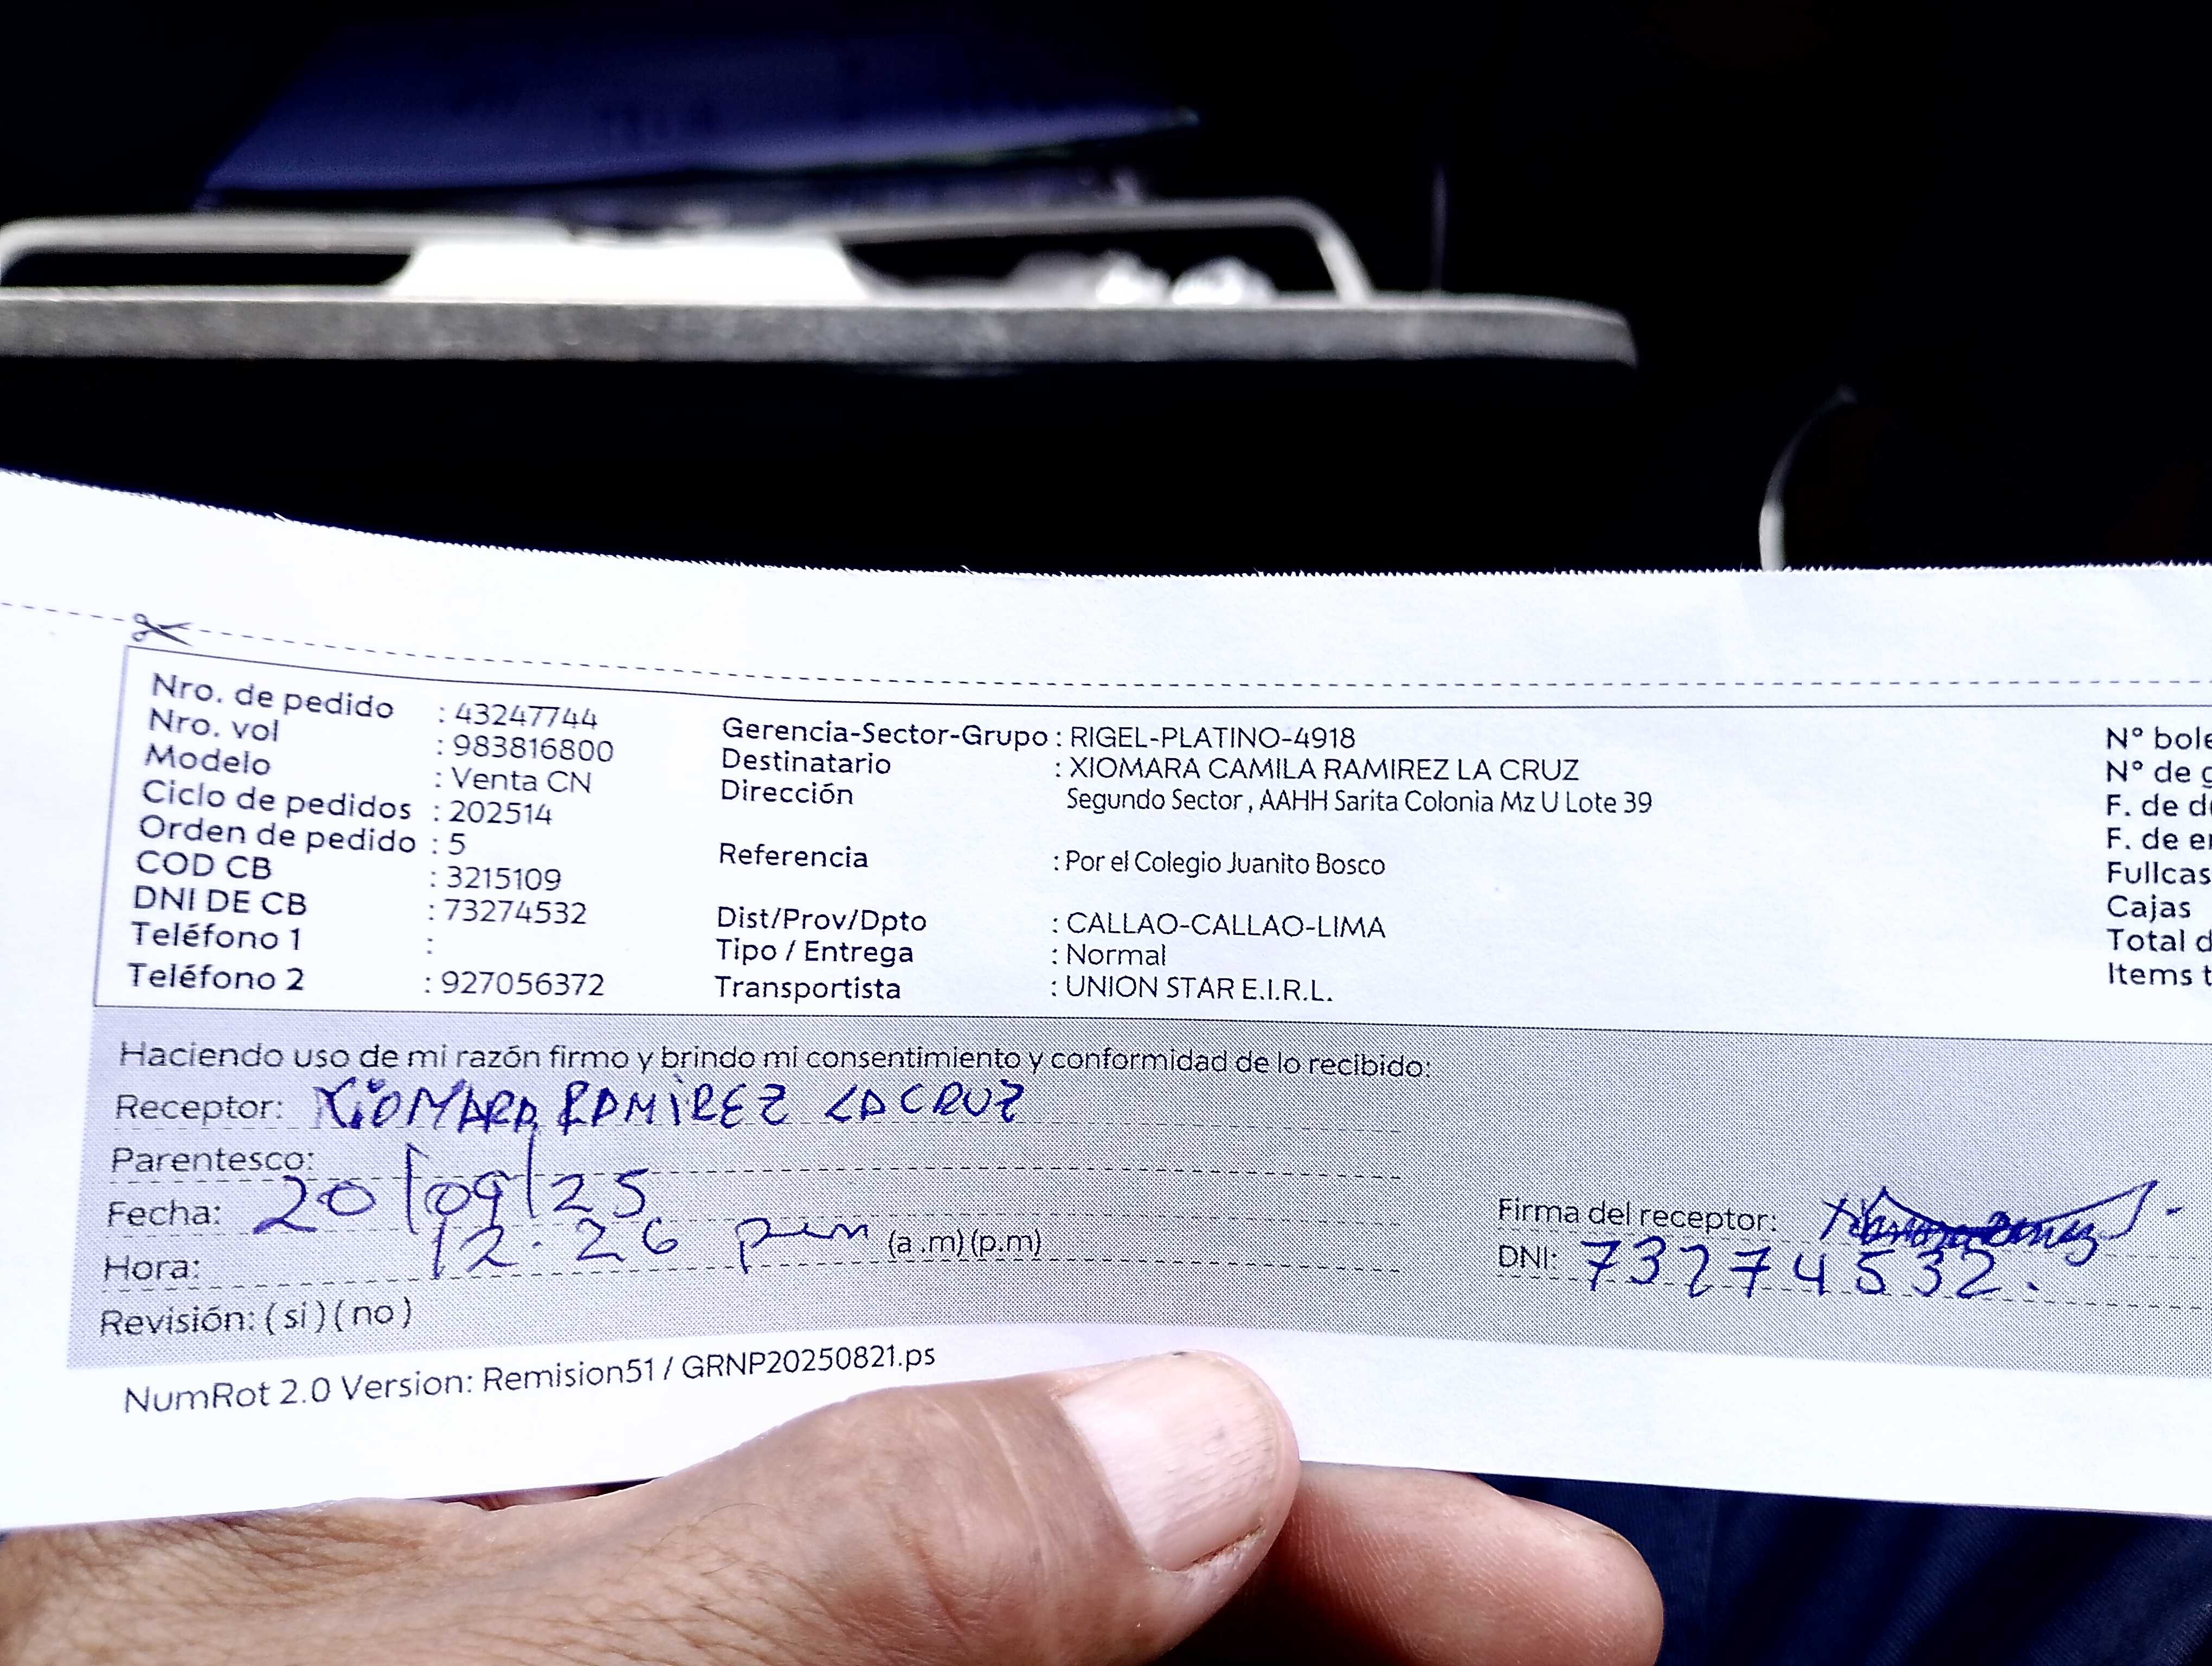 Nro. de pedido : 43247744
Nro. vol : 983816800
Modelo : Venta CN
Ciclo de pedidos : 202514
Orden de pedido : 5
COD CB : 3215109
DNI DE CB : 73274532
Teléfono 1 :
Teléfono 2 : 927056372
Gerencia-Sector-Grupo : RIGEL-PLATINO-4918
Destinatario : XIOMARA CAMILA RAMIREZ LA CRUZ
Dirección Segundo Sector , AAHH Sarita Colonia Mz U Lote 39
Referencia : Por el Colegio Juanito Bosco
Dist/Prov/Dpto : CALLAO-CALLAO-LIMA
Tipo / Entrega : Normal
Transportista : UNION STAR E.I.R.L.
N°
N° de
F. de
F. de
Cajas
Total
Items
Haciendo uso de mi razón firmo y brindo mi consentimiento y conformidad de lo recibido:
Receptor: XIOMARA RAMIREZ LA CRUZ
Parentesco:
Fecha: 20/09/25
Hora: 12.26 pm (a .m) (p.m)
Revisión: ( si ) ( no )
Firma del receptor:
DNI: 73274532.
NumRot 2.0 Version: Remision51 / GRNP20250821.ps